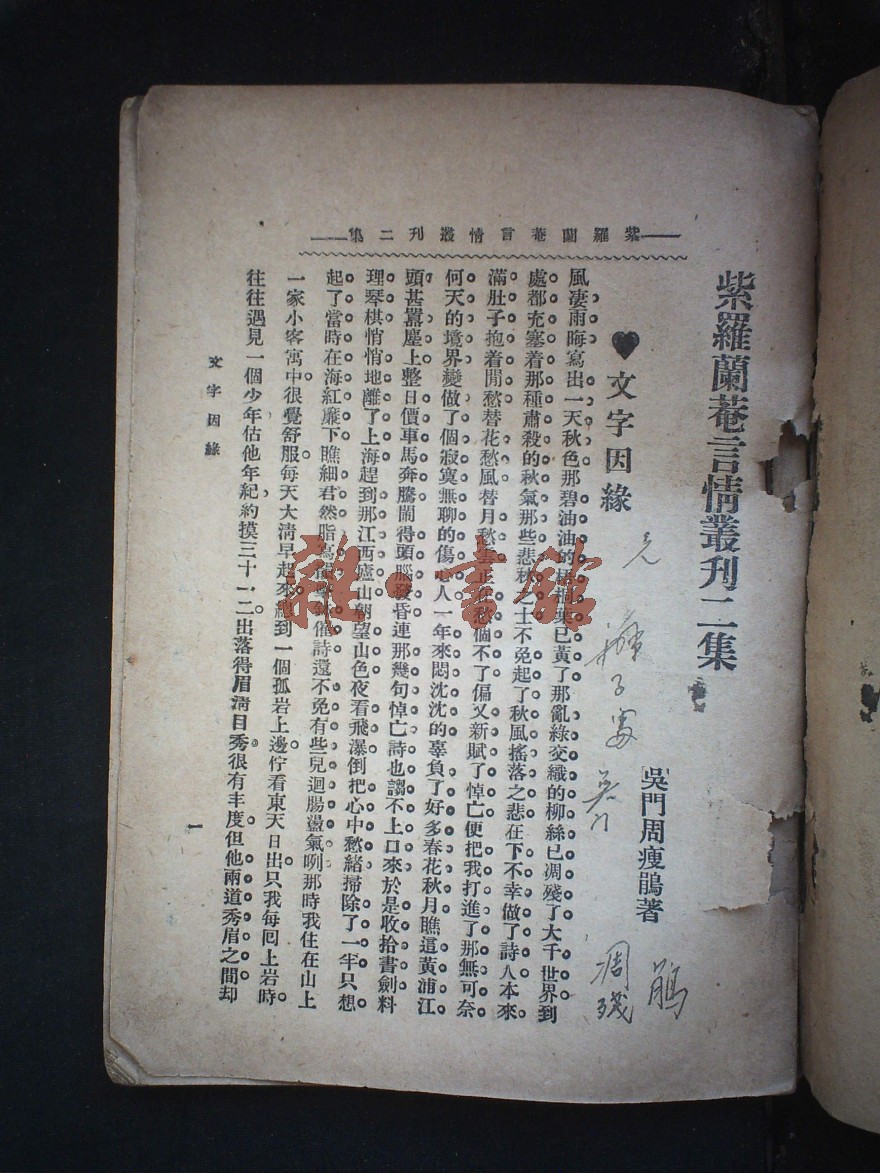 紫羅蘭菴言情叢刊二集
紫羅蘭菴言情叢刊二集
吳門周瘦鵑著
文字因緣
風凄雨晦寫出一天秋色那碧油油的梧桐葉已黃了那亂綠交織的柳絲已凋殘了大千世界到
處都充塞着那種肅殺的秋氣那些悲秋之士不免起了秋風搖落之悲在下不幸做了詩人本來
滿肚子抱着閒愁替花愁風替月愁雲正在愁個不了偏又新賦了悼亡便把我打進了那無可奈
何天的境界變做了個寂寞無聊的傷心人一年來悶沈沈的辜負了好多春花秋月瞧這黃浦江
頭甚囂塵上整日價車馬奔騰鬧得頭腦發昏連那幾句悼亡詩也謅不上口來於是收拾書劍料
理琴棋悄悄地離了上海趕到那江西廬山朝望山色夜看飛瀑倒把心中愁緒掃除了一半只想
起了當時在海紅簾下瞧細君然脂寫韻催詩還不免有些兒迴腸盪氣咧那時我住在山上
一家小客寓中很覺舒服每天大清早起來總到一個孤岩上邊佇看東天日出只我每回上岩時
往往遇見一個少年估他年紀約摸三十一二出落得眉清目秀很有丰度但他兩道秀眉之間却
文字因緣
一
凋殘
鵑
雜書館